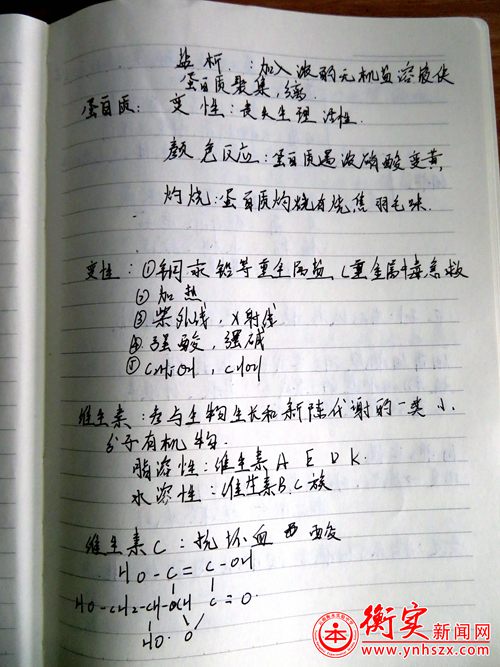 盐析:加入浓的无机盐溶液使
蛋白质聚集,
蛋白质: 变性:丧失生理活性.
颜色反应:蛋白质遇浓硝酸变黄,
灼烧:蛋白质灼烧有烧焦羽毛味.
变性:①铜汞铅等重金属盐(重金属中毒急救
②加热
③紫外线,X射线
④强酸,强碱
⑤
维生素:参与生物生长和新陈代谢的一类小
分子有机物.
脂溶性:维生素A E D K.
水溶性:维生素B.C族
维生素C:抗坏血酸
HO-C=C-OH
HO-CH2-CH-CH C=O.
HO. O
衡实新闻网
www.ynhszx.com